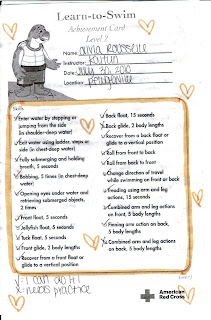 Learn-to-Swim
Achievement Card
Level 2
Name: Olivia
Instructor: Kaitlin
Date: July 30, 2010
Location:
Skills
Enter water by stepping or
jumping from the side
(in shoulder-deep water)
Exit water using ladder, steps or
side (in chest-deep water)
Fully submerging and holding
breath, 5 seconds
Bobbing, 5 times (in chest-deep
water)
Opening eyes under water and
retrieving submerged objects,
2 times
Front float, 5 seconds
Jellyfish float, 5 seconds
Tuck float, 5 seconds
Front glide, 2 body lengths
Recover from a front float or
glide to a vertical position
Back float, 15 seconds
Back glide, 2 body lengths
Recover from a back float or
glide to a vertical position
Roll from front to back
Roll from back to front
Change direction of travel
while swimming on front or back
Treading using arm and leg
actions, 15 seconds
Combined arm and leg actions
on front, 5 body lengths
Finning arm action on back,
5 body lengths
Combined arm and leg actions
on back, 5 body lengths
✓-I can do it!
X-needs practice
American
Red Cross